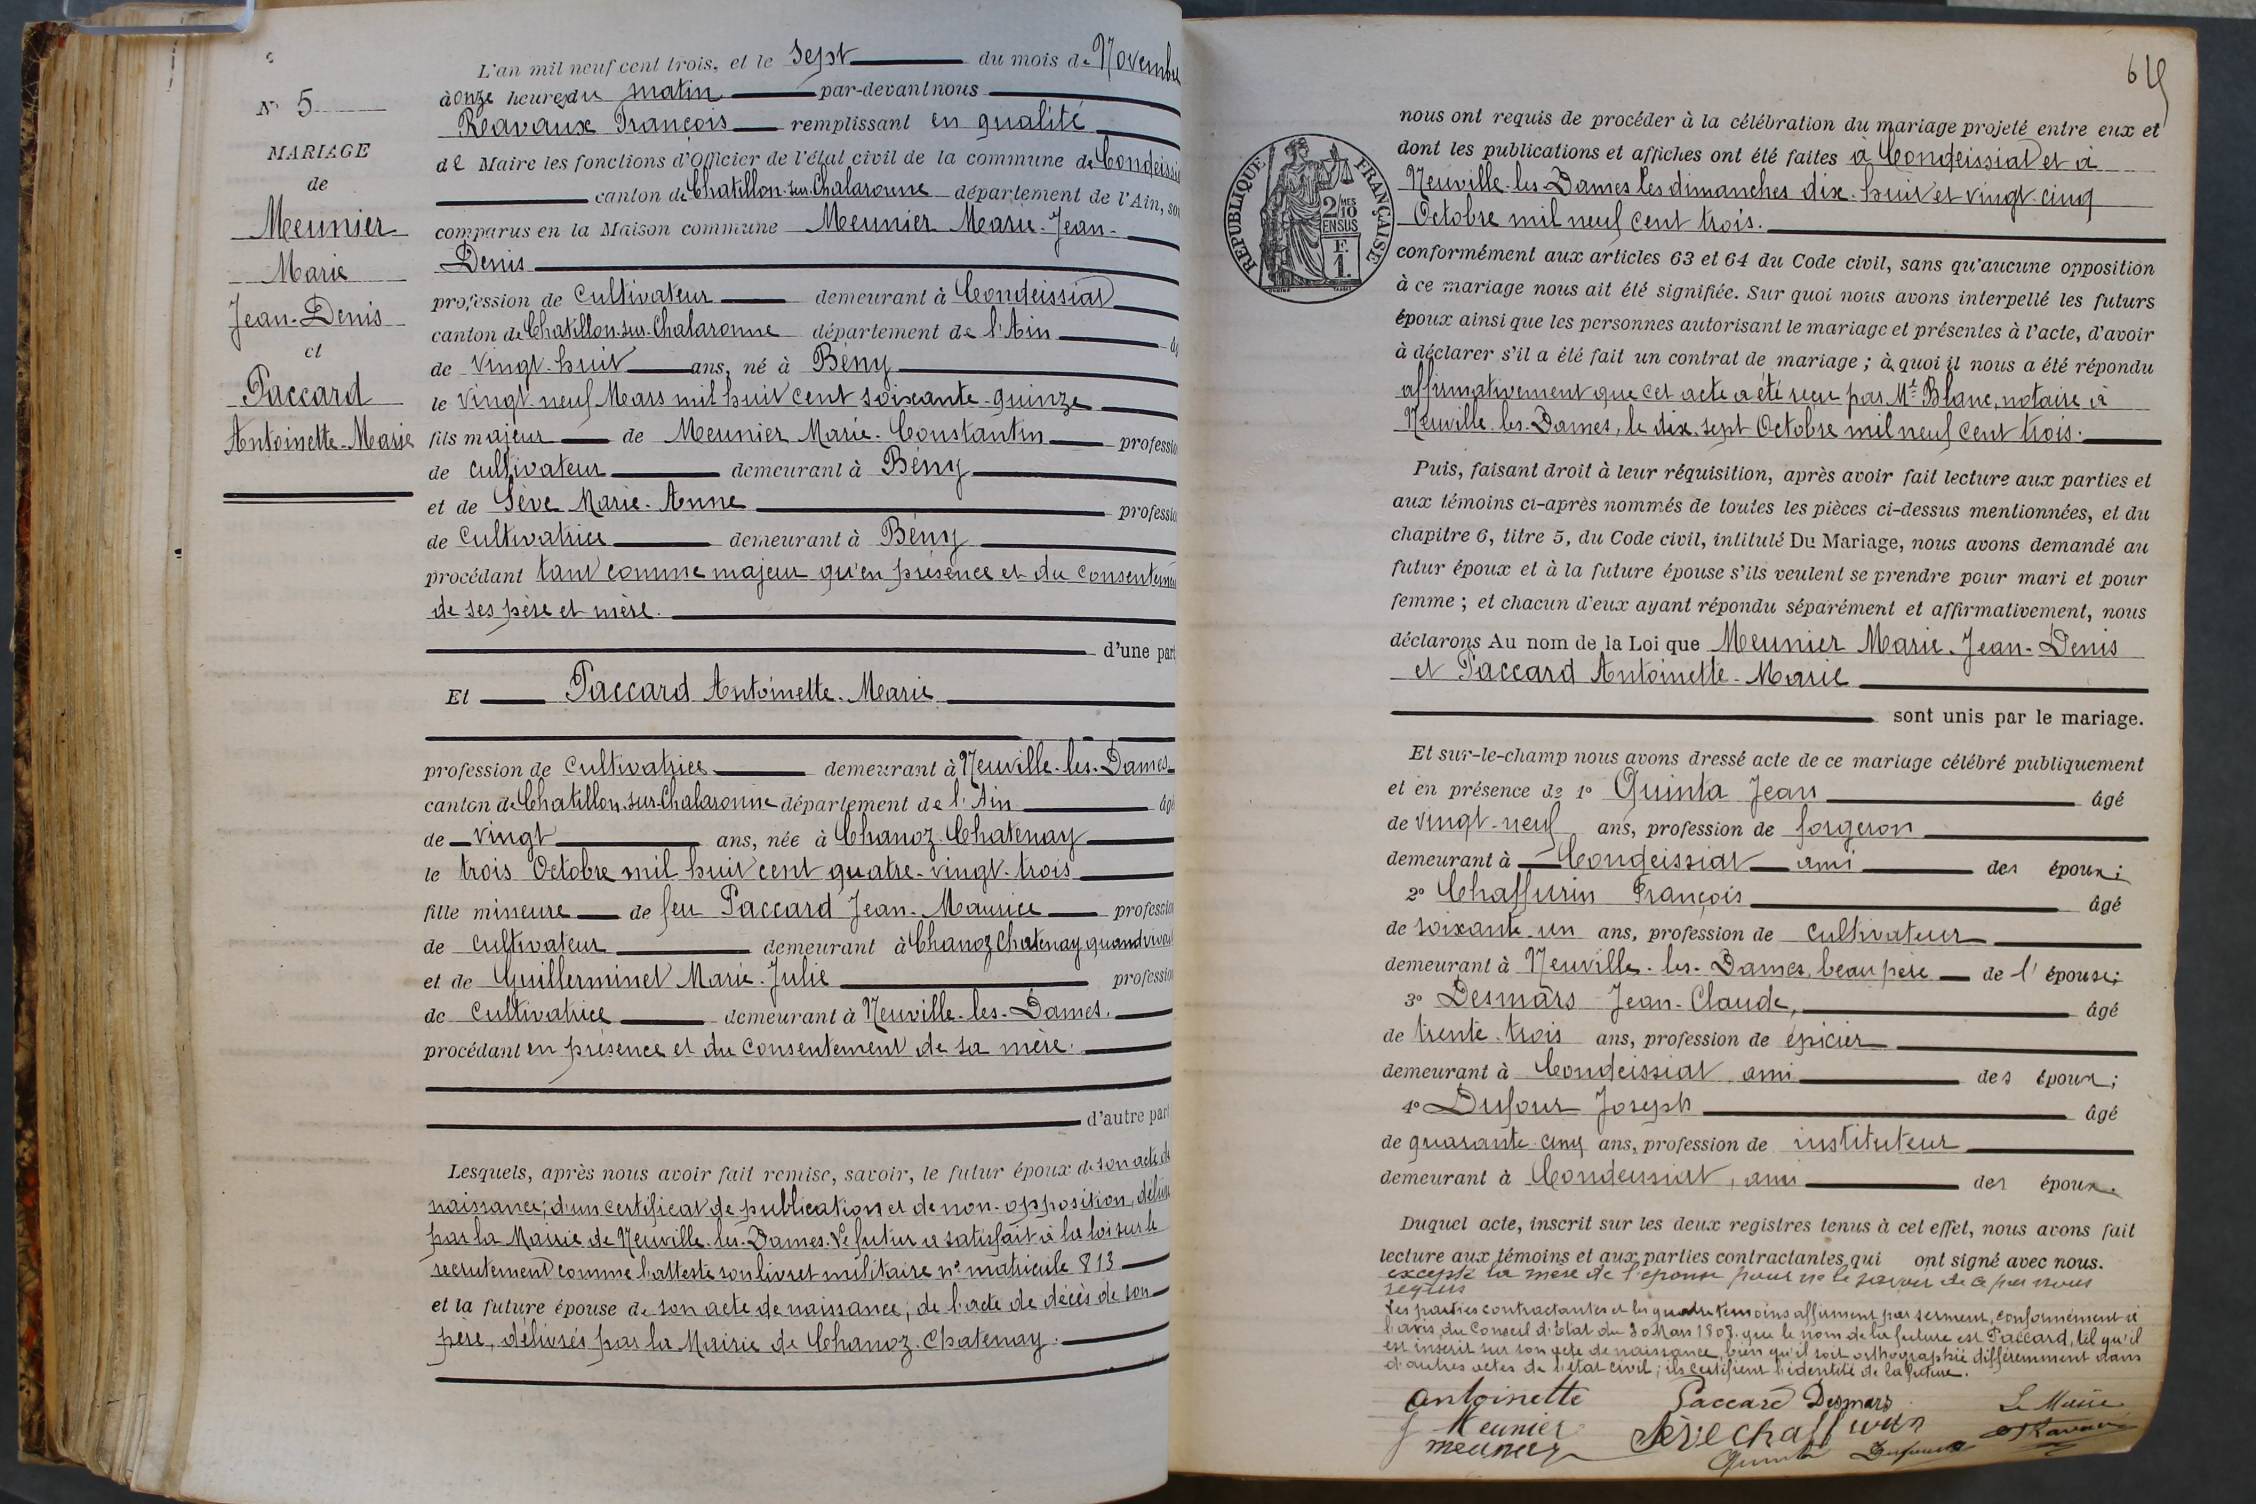 N° 5
MARIAGE
de
Meunier
Marie
Jean-Denis
et
Paccard
Antoinette-Marie
L'an mil neuf cent trois, et le Sept du mois de Novembre
à onze heures du matin par-devant nous
Ravaux François remplissant en qualité
de Maire les fonctions d'Officier de l'état civil de la commune de Condeissi
canton de Chatillon-sur-Chalaronne département de l'Ain, so
comparus en la Maison commune Meunier Marie-Jean-
Denis
profession de Cultivateur demeurant à Condeissiat
canton de Chatillon-sur-Chalaronne département de l'Ain âg
de vingt-huit ans, né à Bény
le vingt-neuf Mars mil huit cent soixante-quinze
fils majeur de Meunier Marie-Constantin professio
de cultivateur demeurant à Bény
et de Sève Marie-Anne professio
de Cultivatrice demeurant à Bény
procédant tant comme majeur qu'en présence et du consenteme
de ses père et mère.
d'une part
Et Paccard Antoinette-Marie
profession de Cultivatrice demeurant à Neuville-les-Dames
canton de Chatillon-sur-Chalaronne département de l'Ain âgé
de vingt ans, née à Chanoz-Chatenay
le trois Octobre mil huit cent quatre-vingt-trois
fille mineure de feu Paccard Jean-Maurice profession
de cultivateur demeurant à Chanoz Chatenay, quand vivait
et de Guillerminet Marie-Julie profession
de Cultivatrice demeurant à Neuville-les-Dames.
procédant en présence et du consentement de sa mère.
d'autre part
Lesquels, après nous avoir fait remise, savoir, le futur époux de son acte de
naissance; d'un certificat de publications et de non-opposition, délivré
par la Mairie de Neuville-les-Dames. Le futur a satisfait à la loi sur le
recrutement comme l'atteste son livret militaire n° matricule 813
et la future épouse de son acte de naissance; de l'acte de décès de son
père, délivrés par la Mairie de Chanoz-Chatenay.
RÉPUBLIQUE FRANÇAISE
2/10 MES
EN SUS
F.
1.
nous ont requis de procéder à la célébration du mariage projeté entre eux et
dont les publications et affiches ont été faites à Condeissiat et à
Neuville-les-Dames les dimanches dix-huit et vingt-cinq
Octobre mil neuf cent trois.
conformément aux articles 63 et 64 du Code civil, sans qu'aucune opposition
à ce mariage nous ait été signifiée. Sur quoi nous avons interpellé les futurs
époux ainsi que les personnes autorisant le mariage et présentes à l'acte, d'avoir
à déclarer s'il a été fait un contrat de mariage ; à quoi il nous a été répondu
affirmativement que cet acte a été reçu par Me Blanc, notaire à
Neuville-les-Dames, le dix-sept Octobre mil neuf cent trois.
Puis, faisant droit à leur réquisition, après avoir fait lecture aux parties et
aux témoins ci-après nommés de toutes les pièces ci-dessus mentionnées, et du
chapitre 6, titre 5, du Code civil, intitulé Du Mariage, nous avons demandé au
futur époux et à la future épouse s'ils veulent se prendre pour mari et pour
femme ; et chacun d'eux ayant répondu séparément et affirmativement, nous
déclarons Au nom de la Loi que Meunier Marie-Jean-Denis
et Paccard Antoinette-Marie
sont unis par le mariage.
Et sur-le-champ nous avons dressé acte de ce mariage célébré publiquement
et en présence de 1° Quinta Jean âgé
de vingt-neuf ans, profession de forgeron
demeurant à Condeissiat ami des époux;
2° Chaffurin François âgé
de soixante-un ans, profession de cultivateur
demeurant à Neuville-les-Dames, beau père de l'épouse;
3° Desmars Jean-Claude, âgé
de trente-trois ans, profession de épicier
demeurant à Condeissiat, ami des époux;
4° Dufour Joseph âgé
de quarante-cinq ans, profession de instituteur
demeurant à Condeissiat, ami des époux.
Duquel acte, inscrit sur les deux registres tenus à cet effet, nous avons fait
lecture aux témoins et aux parties contractantes qui ont signé avec nous.
excepté la mère de l'épouse pour ne le savoir de ce par nous
requis
Les parties contractantes et les quatre témoins affirment par serment, conformément à
l'avis du Conseil d'Etat du 30 Mars 1808. que le nom de la future est Paccard, tel qu'il
est inscrit sur son acte de naissance, bien qu'il soit orthographié différemment dans
d'autres actes de l'état civil; ils certifient l'identité de la future.
Antoinette Paccard Desmars Le Maire
J Meunier Sève Chaffurin Ravaux
meunier Quinta Dufour